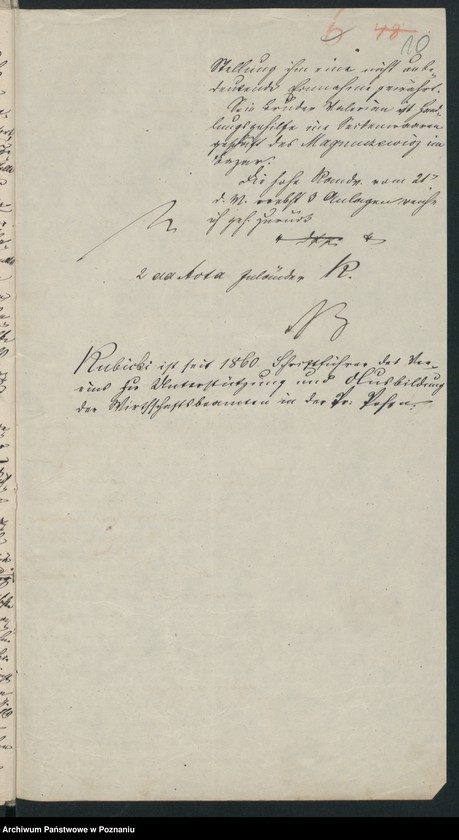 6 48 10
Stellung ihm eine nicht unbe-
deutende Einnahme gewährt.
Sein Bruder Valerian ist Hand-
lungsgehilfe im Seidenwaaren
geschäft des Magnuszewicz im
Bazar.
Die hohe Randv. vom 21t
d. M. nebst 3 Anlagen reiche
ich geh. zurück
2 ad Acta Inländer K.
Kubicki ist seit 1860 Schriftführer des Ver-
eins zur Unterstützung und Ausbildung
der Wirthschaftsbeamten in der Pr. Posen.
Archiwum Państwowe w Poznaniu